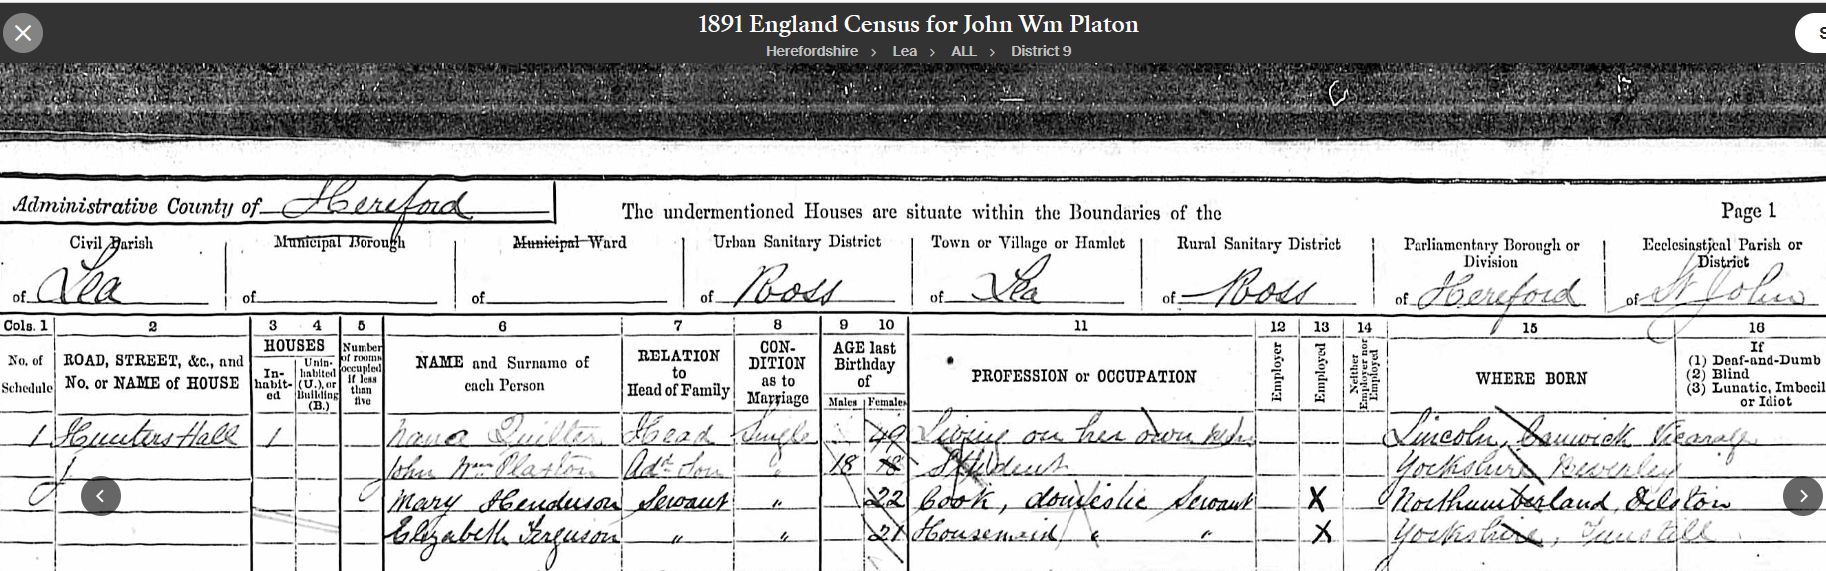 1891 England Census for John Wm Platon
Herefordshire > Lea > ALL > District 9
Administrative County of Hereford
The undermentioned Houses are situate within the Boundaries of the
Page 1
Civil Parish of Lea
Municipal Borough of
Municipal Ward of
Urban Sanitary District of Ross
Town or Village or Hamlet of Lea
Rural Sanitary District of Ross
Parliamentary Borough or Division of Hereford
Ecclesiastical Parish or District of St John
Cols. 1 2 3 4 5 6 7 8 9 10 11 12 13 14 15 16
No. of Schedule
ROAD, STREET, &c., and No. or NAME of HOUSE
HOUSES
In-habit-ed
Unin-habited (U.), or Building (B.)
Number of rooms occupied if less than five
NAME and Surname of each Person
RELATION to Head of Family
CON-DITION as to Marriage
AGE last Birthday of
Males Females
PROFESSION or OCCUPATION
Employer
Employed
Neither Employer nor Employed
WHERE BORN
If
(1) Deaf-and-Dumb
(2) Blind
(3) Lunatic, Imbecil
or Idiot
1 Hunters Hall 1 Quilter Head Single 49 Living on her own Lincoln, Canwick Vicarage
John Wm Plaxton Adtd Son " 18 18 Student Yorkshire Beverley
Mary Henderson Servant " 22 Cook, domestic Servant X Northumberland, Dilston
Elizabeth Ferguson " " 21 Housemaid " " X Yorkshire, Tunstill